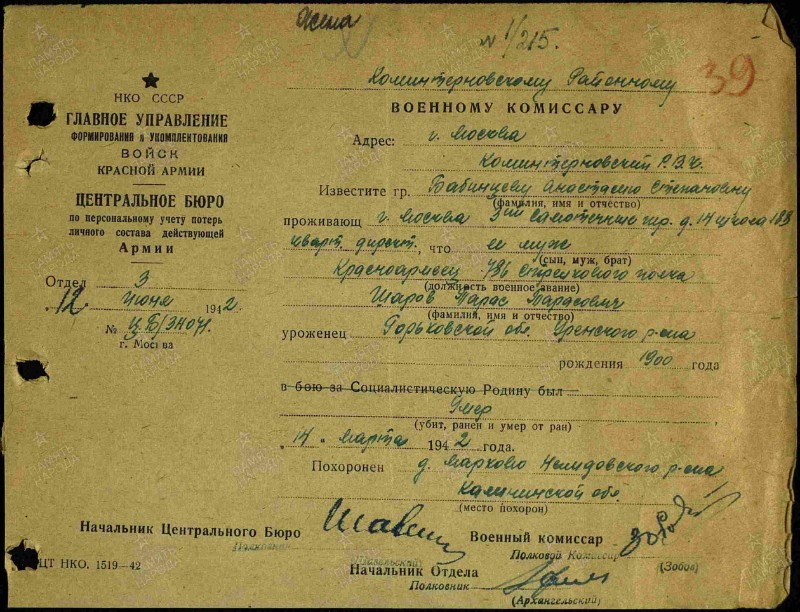 Жена
№ 1/215.
39
НКО СССР
ГЛАВНОЕ УПРАВЛЕНИЕ
ФОРМИРОВАНИЯ и УКОМПЛЕКТОВАНИЯ
ВОЙСК
КРАСНОЙ АРМИИ
ЦЕНТРАЛЬНОЕ БЮРО
по персональному учету потерь
личного состава действующей
Армии
Отдел 3
„12 июня 1942.
№ ЦБ/34041.
г. Москва
Коминтерновскому Районному
ВОЕННОМУ КОМИССАРУ
Адрес: г. Москва
Коминтерновский Р.В.К.
Известите гр. Бабинцеву Анастасию Степановну
(фамилия, имя и отчество)
проживающ г. Москва 3ий Самотечный пер. д. 14
кварт. директ., что ее муж
(сын, муж, брат)
Красноармеец 736 стрелкового полка
(должность военное звание)
Шаров Тарас Тарасович
(фамилия, имя и отчество)
уроженец Горьковской обл. Уренского р-на
рождения 1900 года
в бою за Социалистическую Родину был
Умер
(убит, ранен и умер от ран)
„14" марта 1942 года.
Похоронен д. Мархово Нелидовского р-на
Калининской обл.
(место похорон)
Начальник Центрального Бюро
Военный комиссар
Полковой Комиссар
(Зобов)
Начальник Отдела
Полковник
(Архангельский)
ЦТ НКО. 1519—42
ПАМЯТЬ НАРОДА